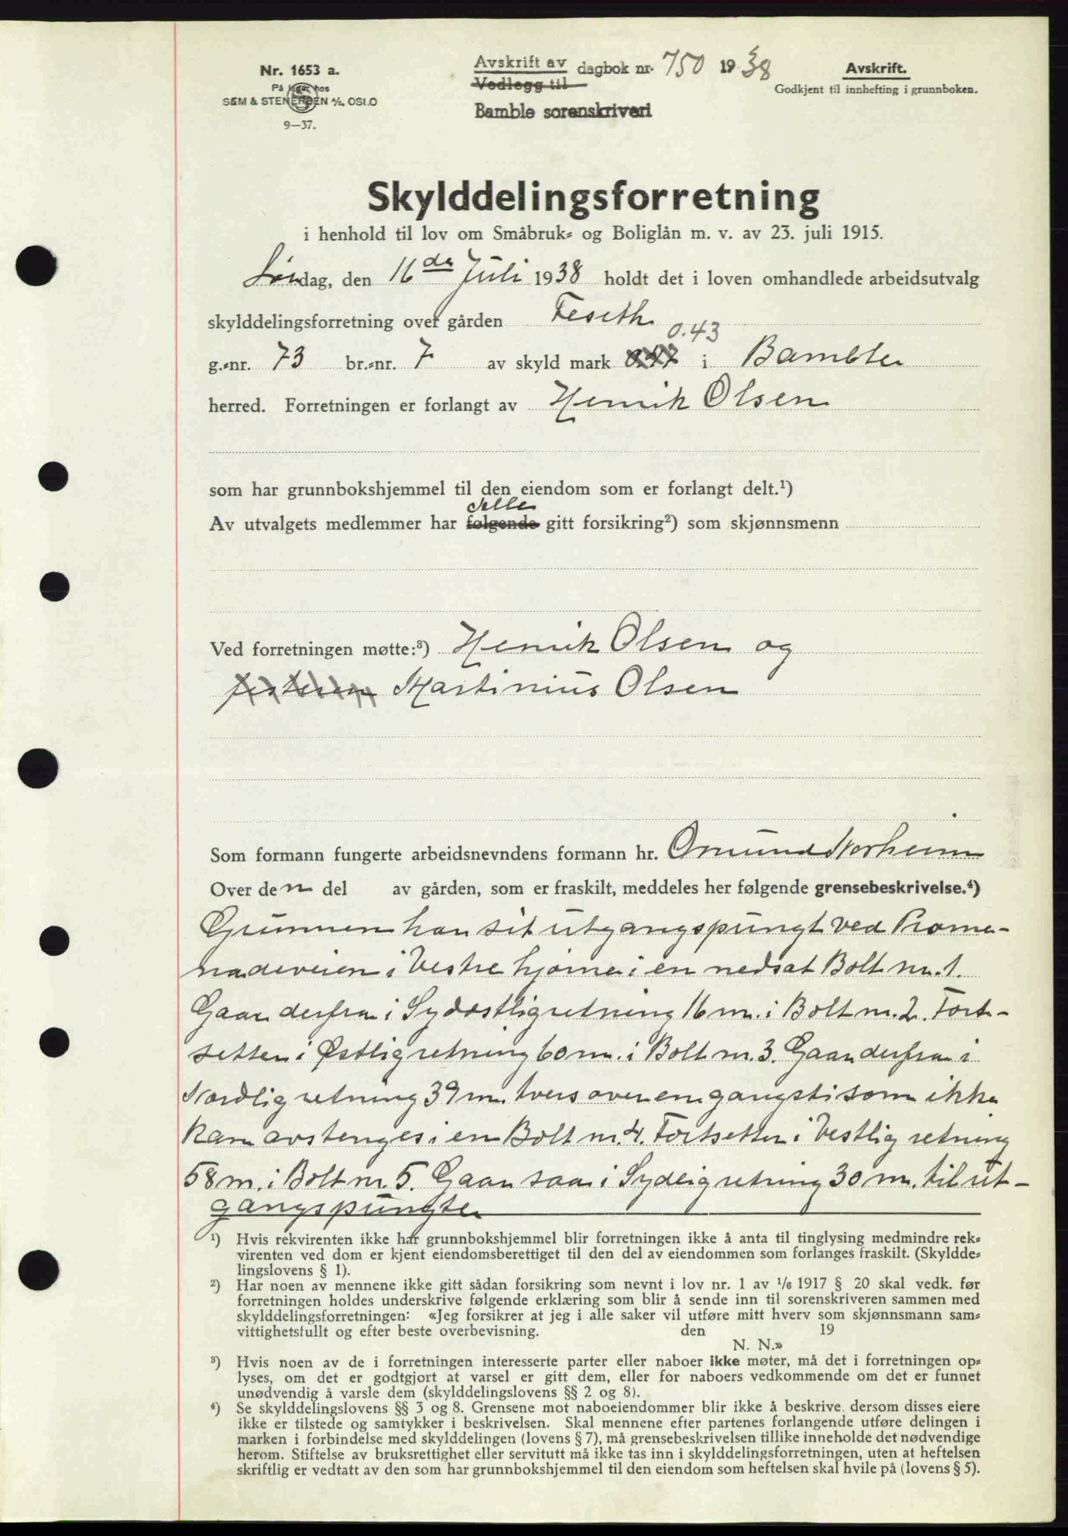 Nr. 1653 a.
På lager hos
SEM & STENERSEN A/S, OSLO
9—37.
Avskrift av dagbok nr. 750 1938
Vedlegg til
Bamble sorenskriveri
Avskrift.
Godkjent til innhefting i grunnboken.
Skylddelingsforretning
i henhold til lov om Småbruk- og Boliglån m. v. av 23. juli 1915.
dag, den 16de Juli 1938 holdt det i loven omhandlede arbeidsutvalg
skylddelingsforretning over gården Feseth
0.43
g.-nr. 73 br.-nr. 7 av skyld mark 0.47 i Bamble
herred. Forretningen er forlangt av Henrik Olsen
som har grunnbokshjemmel til den eiendom som er forlangt delt.¹)
alle
Av utvalgets medlemmer har følgende gitt forsikring²) som skjønnsmenn
Ved forretningen møtte:³) Henrik Olsen og
Martinius Olsen
Som formann fungerte arbeidsnevndens formann hr. Omund Norheim
Over den del av gården, som er fraskilt, meddeles her følgende grensebeskrivelse.⁴)
Grunnen har sit utgangspungt ved Prome-
nadeveien i Vestre hjørne i en nedsat Bolt nr. 1.
Gaar derfra i Sydøstlig retning 16 m. i Bolt nr. 2. Fort-
setter i Østlig retning 60 m. i Bolt nr. 3. Gaar derfra i
Nordlig retning 39 m. tvers over en gangsti som ikke
kan avstenges i en Bolt nr. 4. Fortsetter i Vestlig retning
58 m. i Bolt nr 5. Gaar saa i Sydlig retning 30 m. til ut-
gangspungter
¹) Hvis rekvirenten ikke har grunnbokshjemmel blir forretningen ikke å anta til tinglysing medmindre rek-
virenten ved dom er kjent eiendomsberettiget til den del av eiendommen som forlanges fraskilt. (Skyldde-
lingslovens § 1).
²) Har noen av mennene ikke gitt sådan forsikring som nevnt i lov nr. 1 av 1/6 1917 § 20 skal vedk. før
forretningen holdes underskrive følgende erklæring som blir å sende inn til sorenskriveren sammen med
skylddelingsforretningen: «Jeg forsikrer at jeg i alle saker vil utføre mitt hverv som skjønnsmann sam-
vittighetsfullt og efter beste overbevisning. den 19
N. N.»
³) Hvis noen av de i forretningen interesserte parter eller naboer ikke møter, må det i forretningen op-
lyses, om det er godtgjort at varsel er gitt dem, eller for naboers vedkommende om det er funnet
unødvendig å varsle dem (skylddelingslovens §§ 2 og 8).
⁴) Se skylddelingslovens §§ 3 og 8. Grensene mot naboeiendommer blir ikke å beskrive, dersom disses eiere
ikke er tilstede og samtykker i beskrivelsen. Skal mennene efter partenes forlangende utføre delingen i
marken i forbindelse med skylddelingen (lovens § 7), må grensebeskrivelsen tillike inneholde det nødvendige
herom. Stiftelse av bruksrettighet eller servitutt må ikke tas inn i skylddelingsforretningen, uten at heftelsen
skriftlig er vedtatt av den som har grunnbokshjemmel til den eiendom som heftelsen skal hvile på (lovens § 5).